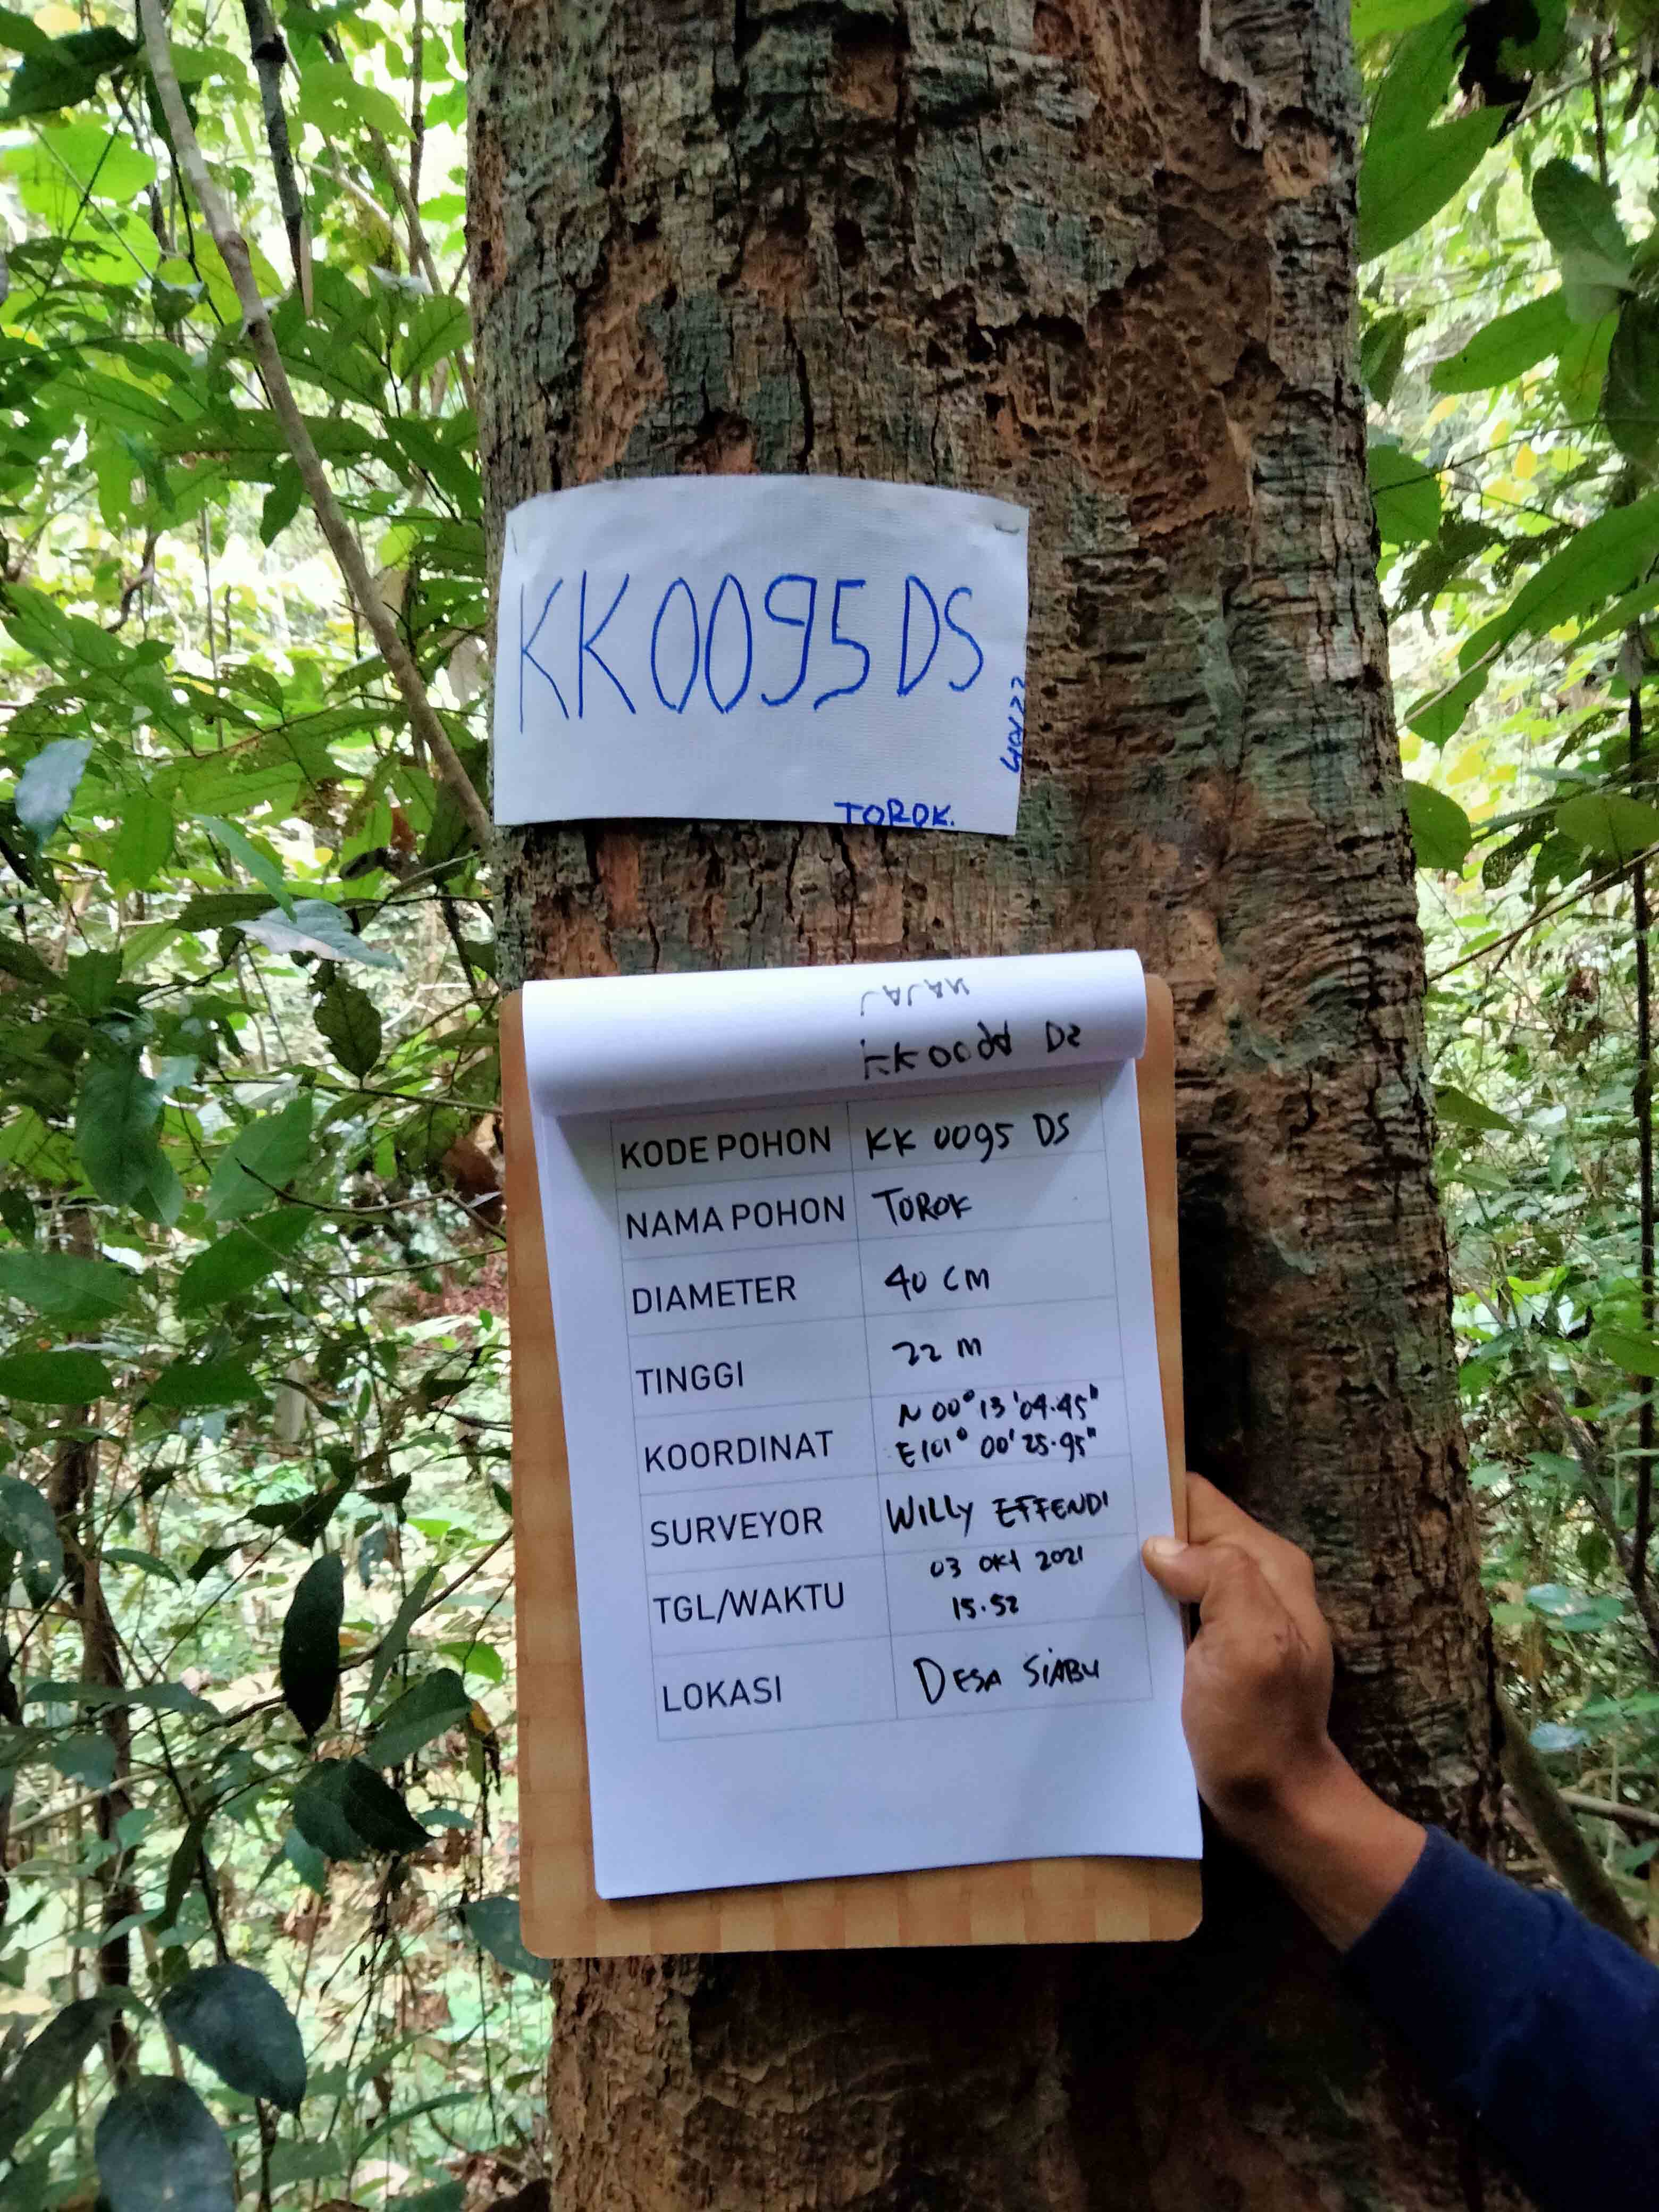 KK0095DS
40x22
TOROK.
KODE POHON KK 0095 DS
NAMA POHON TOROK
DIAMETER 40 CM
TINGGI 22 M
KOORDINAT N 00° 13 '04.45" E101° 00' 25.95"
SURVEYOR WILLY EFFENDI
TGL/WAKTU 03 OKt 2021 15.52
LOKASI DESA SIABU